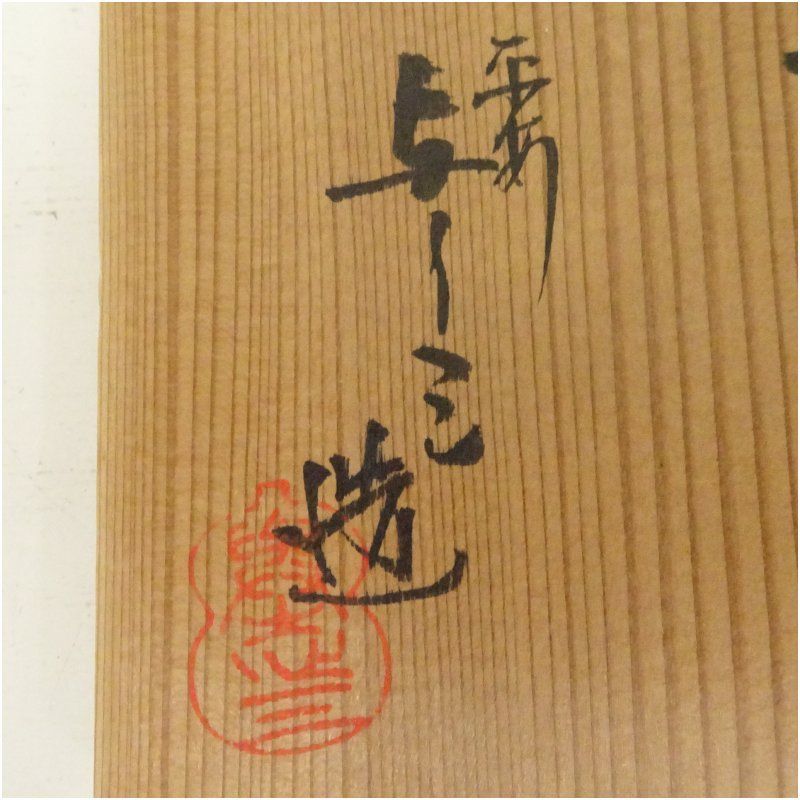 平安
与し三造